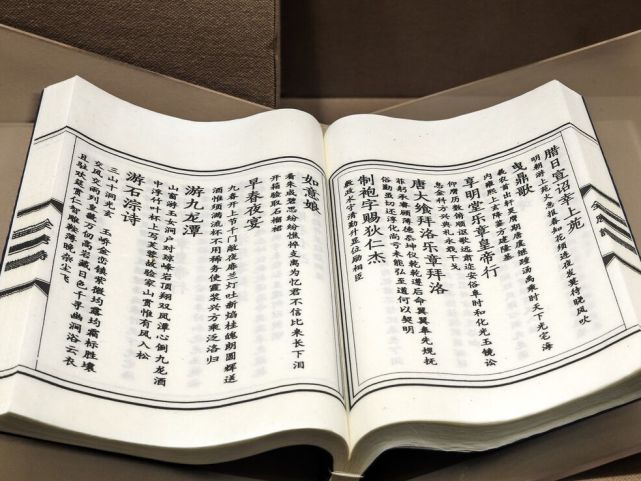 腊日宣诏幸上苑
明朝游上苑火急报春知花须连夜发莫待晓风吹
曳鼎歌
羲农首出轩昊膺期唐虞继踵汤禹乘时天下光宅海
内雍熙上玄降鉴方建隆基
享明堂乐章皇帝行
仰膺历数俯顺讴歌远肃迩安俗阜时和化光玉镜讼
息金科方兴典礼永戢干戈
唐大飨拜洛乐章拜洛
菲躬承睿顾薄德忝坤仪乾乾遵后命翼翼奉先规抚
俗勤虽切还淳化尚亏未能弘至道何以契明
制袍字赐狄仁杰
敷政术守清勤升显位励相臣
如意娘
看朱成碧思纷纷憔悴支离为忆君不信比来长下泪
开箱验取石榴裙
早春夜宴
九春开上节千门敞夜扉兰灯吐新焰桂魄朗圆辉送
酒惟须满流杯不用稀务使霞浆兴方乘泛洛归
游九龙潭
山窗游玉女涧户对琼峰岩顶翔双凤潭心倒九龙酒
中浮竹叶杯上写芙蓉故验家山赏惟有风入松
游石淙诗
三山十洞光玄 玉峤金峦镇紫微均露均霜标胜壤
交风交雨列皇畿万仞高岩藏日色千寻幽涧浴云衣
且驻欢筵赏仁智雕鞍薄晚杂尘飞